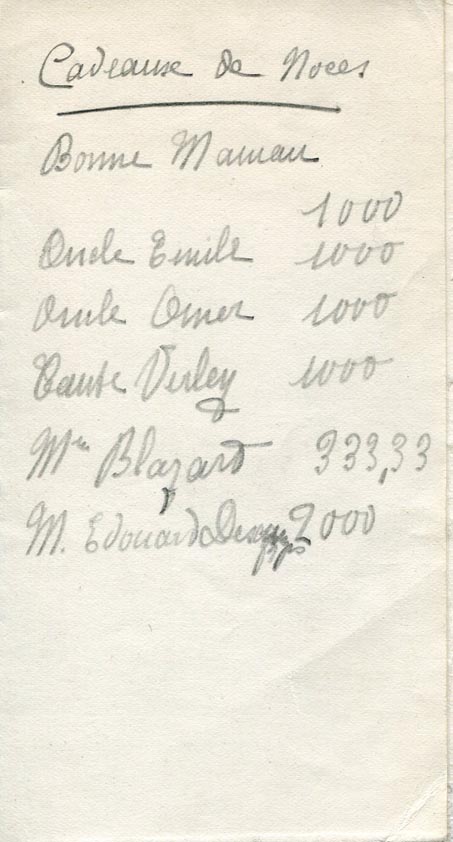 Cadeaux de Noces
Bonne Maman
1000
Oncle Emile 1000
Oncle Omer 1000
Tante Verley 1000
Mme Blazart 333,33
M. Edouard 2000